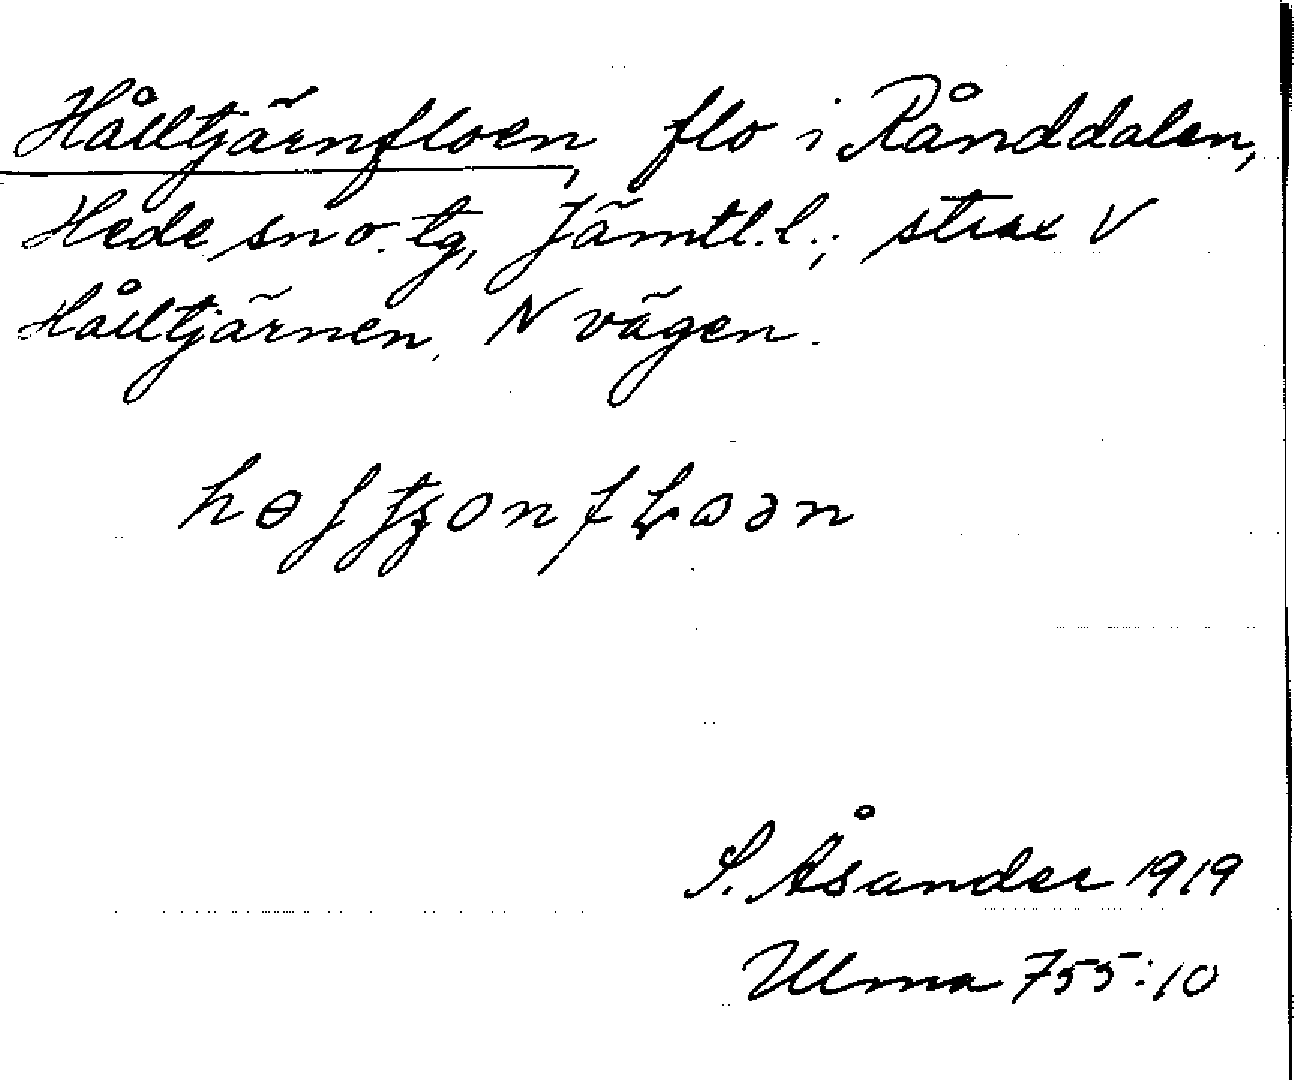 Hålltjärnfloen, flo i Rånddalen,
Hede sn o. tg, Jämtl. l.; strax V
Hålltjärnen, N vägen.
S. Åsander 1919
Ulma 755:10